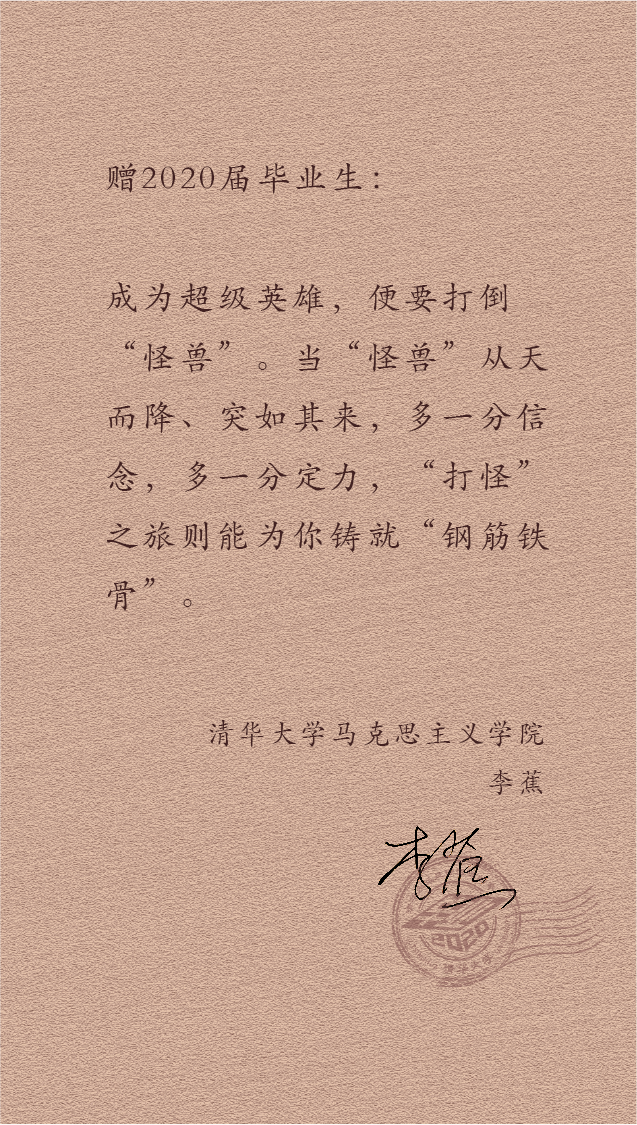 赠2020届毕业生：
成为超级英雄，便要打倒
“怪兽”。当“怪兽”从天
而降、突如其来，多一分信
念，多一分定力，“打怪”
之旅则能为你铸就“钢筋铁
骨”。
清华大学马克思主义学院
李蕉
李蕉
2020
清华大学